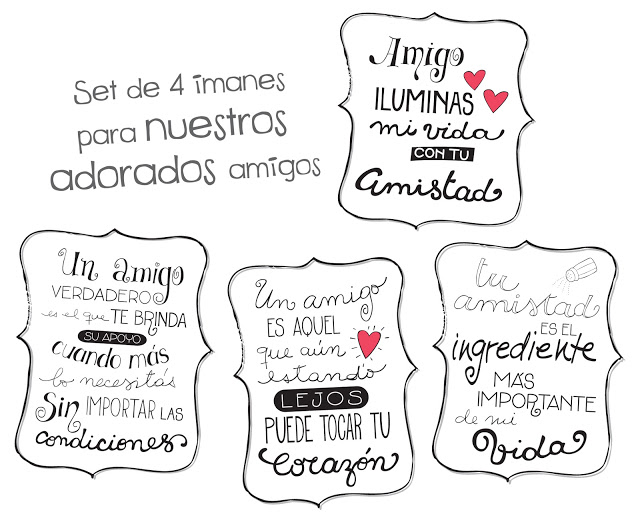 Set de 4 imanes
para nuestros
adorados amigos
Amigo
ILUMINAS
mi vida
CON TU
Amistad
Un amigo
VERDADERO
es el que TE BRINDA
SU APOYO
cuando más
lo necesitás
Sin IMPORTAR LAS
condiciones
Un amigo
ES AQUEL
que aún
estando
LEJOS
PUEDE TOCAR TU
Corazón
tu
amistad
ES EL
ingrediente
MÁS
IMPORTANTE
de mi
Vida